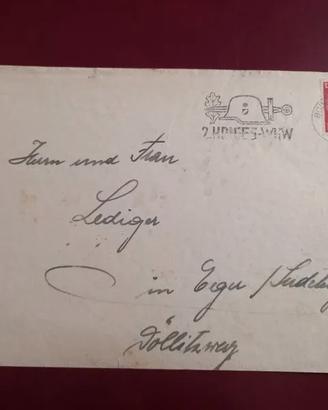 2.KRIEGS-WHW
Herrn und Frau
Lediger
in Eger /Sudet
Döllitzweg